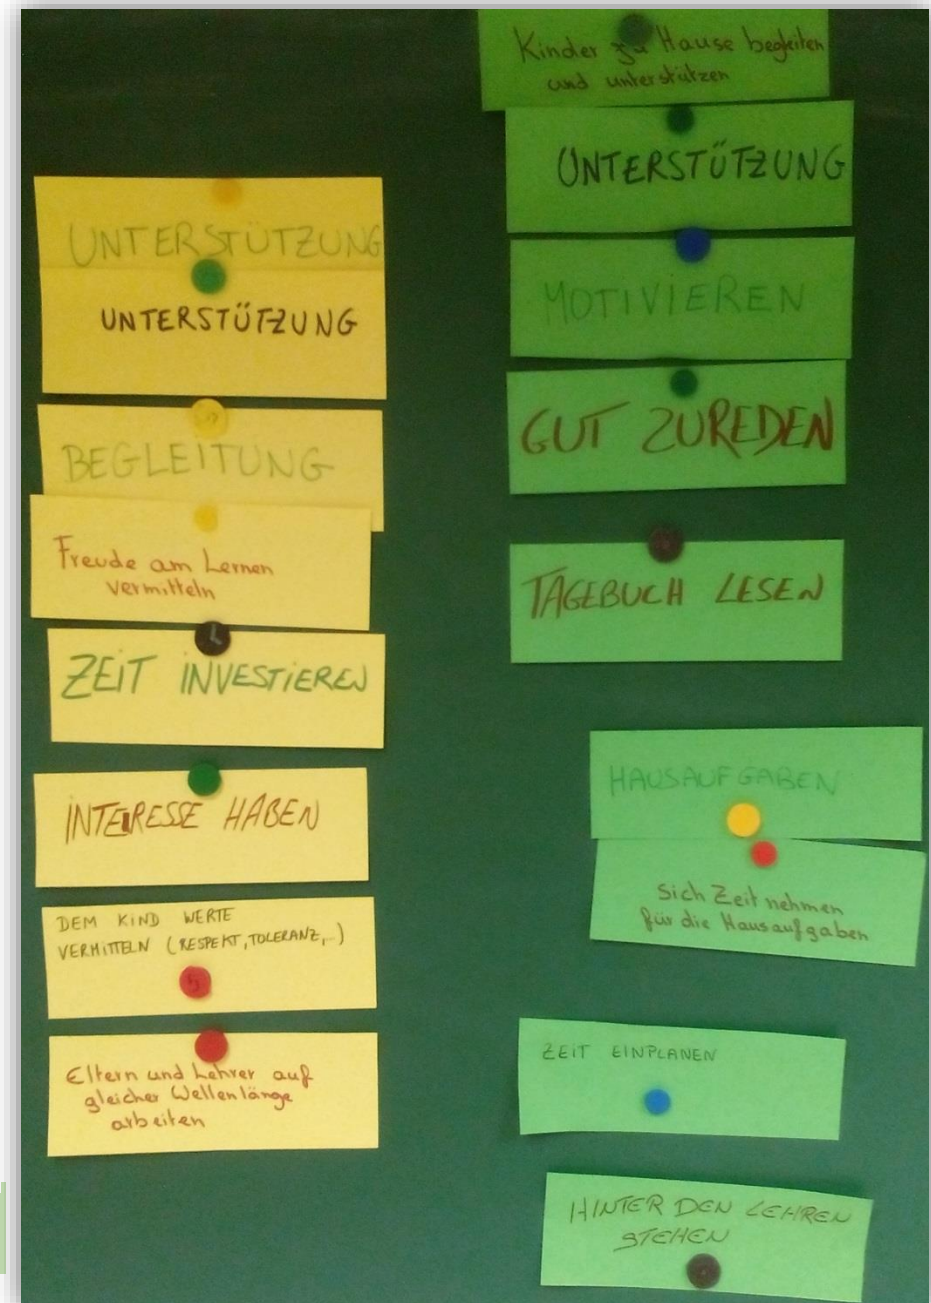 UNTERSTÜTZUNG
UNTERSTÜTZUNG
BEGLEITUNG
Freude am Lernen
vermitteln
ZEIT INVESTIEREN
INTERESSE HABEN
DEM KIND WERTE
VERMITTELN (RESPEKT, TOLERANZ,...)
Eltern und Lehrer auf
gleicher Wellenlänge
arbeiten
Kinder zu Hause begleiten
und unterstützen
UNTERSTÜTZUNG
MOTIVIEREN
GUT ZUREDEN
TAGEBUCH LESEN
HAUSAUFGABEN
Sich Zeit nehmen
für die Hausaufgaben
ZEIT EINPLANEN
HINTER DEN LEHREN
STEHEN